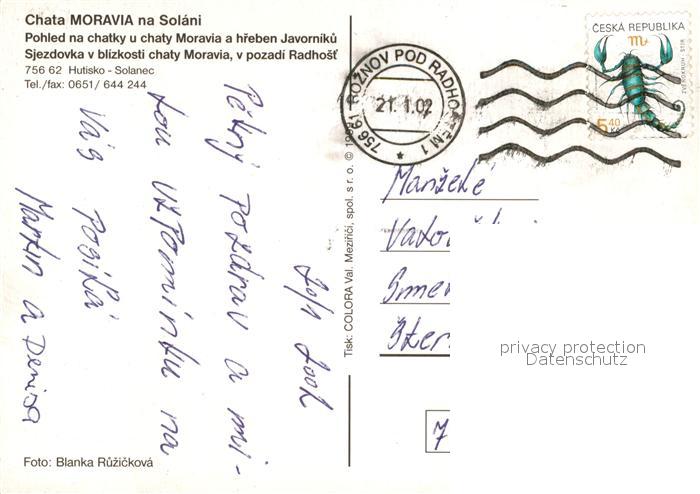 Chata MORAVIA na Soláni
Pohled na chatky u chaty Moravia a hřeben Javorníků
Sjezdovka v blízkosti chaty Moravia, v pozadí Radhošť
756 62 Hutisko - Solanec
Tel./fax: 0651/ 644 244
ČESKÁ REPUBLIKA
5.40
Kč
756 61 ROŽNOV POD RADHOŠTĚM 1
21.1.02
20/1 2002
Pěkný pozdrav a mi-
lou vzpomínku na
Vás posílá
Martin a Denisa
Tisk: COLORA Val. Meziříčí, spol. s r. o. ©
Manželé
7
privacy protection
Datenschutz
Foto: Blanka Růžičková